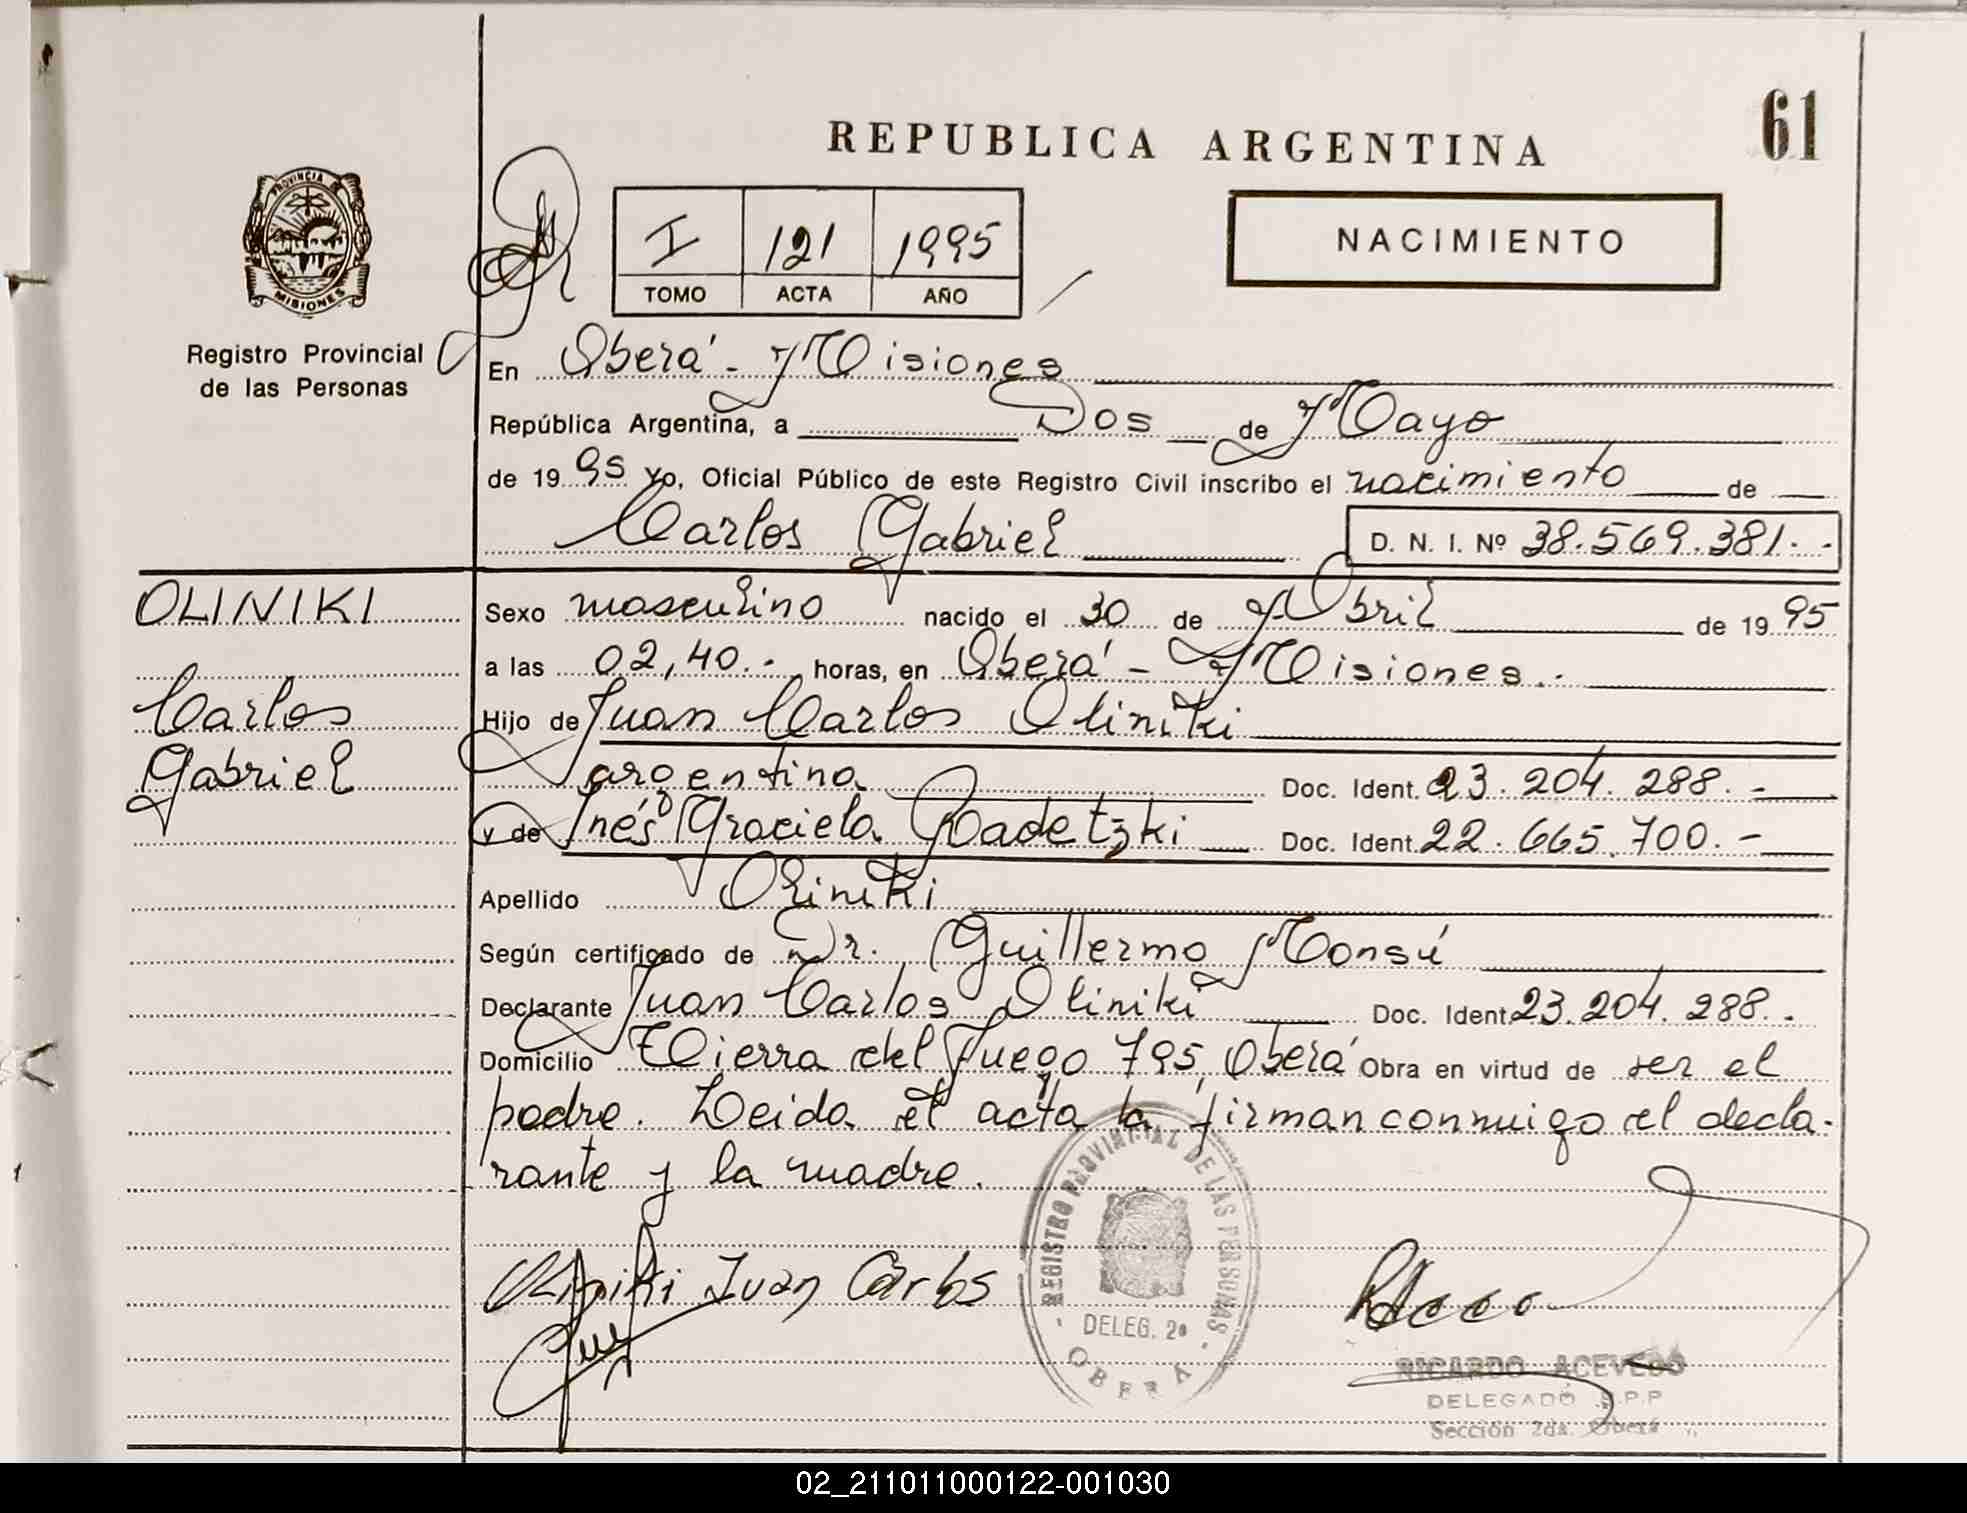 61
REPUBLICA ARGENTINA
PROVINCIA DE
MISIONES
Registro Provincial
de las Personas
I 121 1995
TOMO ACTA AÑO
NACIMIENTO
En Oberá - Misiones
República Argentina, a Dos de Mayo
de 1995 Yo, Oficial Público de este Registro Civil inscribo el nacimiento de
Carlos Gabriel D. N. I. Nº 38.569.381.-
OLINIKI
Carlos
Gabriel
Sexo masculino nacido el 30 de Abril de 1995
a las 02,40.- horas, en Oberá - Misiones.-
Hijo de Juan Carlos Oliniki
argentino Doc. Ident. 23.204.288.-
y de Inés Graciela Radetzki Doc. Ident. 22.665.700.-
Apellido Oliniki
Según certificado de Dr. Guillermo Monsú
Declarante Juan Carlos Oliniki Doc. Ident. 23.204.288.-
Domicilio Tierra del Fuego 795, Oberá Obra en virtud de ser el
padre. Leida el acta la firman conmigo el decla-
rante y la madre.
Oliniki Juan Carlos
REGISTRO PROVINCIAL DE LAS PERSONAS
DELEG. 2a
- OBERA -
RICARDO ACEVEDO
DELEGADO R.P.P
Sección 2da. Oberá
02_211011000122-001030